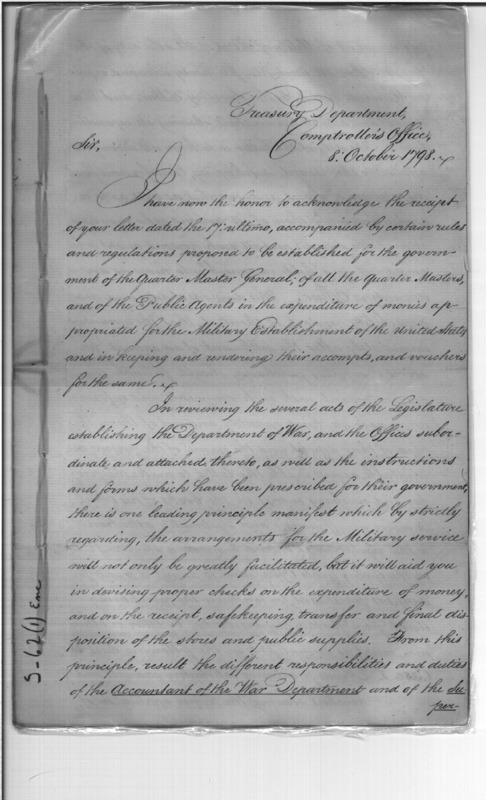 Treasury Department,
Comptroller's Office,
8: October 1798.
Sir,
I have now the honor to acknowledge the receipt
of your letter dated the 17: ultimo, accompanied by certain rules
and regulations proposed to be established for the govern-
ment of the Quarter Master General; of all the Quarter Masters,
and of the Public Agents in the expenditure of monies ap-
propriated for the Military Establishment of the United States
and in keeping and rendering their accompts, and vouchers
for the same.
In reviewing the several acts of the Legislature
establishing the Department of War, and the Offices subor-
dinate and attached thereto, as well as the instructions
and forms which have been prescribed for their government,
there is one leading principle manifest which by strictly
regarding, the arrangements for the Military service
will not only be greatly facilitated, but it will aid you
in devising proper checks on the expenditure of money,
and on the receipt, safekeeping, transfer and final dis-
position of the stores and public supplies. From this
principle, result the different responsibilities and duties
of the Accountant of the War Department and of the Su
per-
S-62(1) Enc